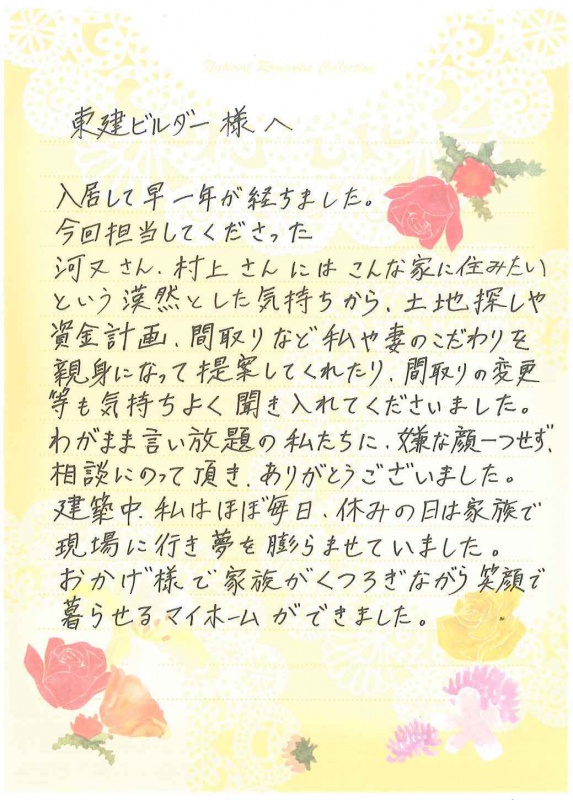 Natural Romantic Collection
東建ビルダー様へ
入居して早一年が経ちました。
今回担当してくださった
河又さん、村上さんにはこんな家に住みたい
という漠然とした気持ちから、土地探しや
資金計画、間取りなど私や妻のこだわりを
親身になって提案してくれたり、間取りの変更
等も気持ちよく聞き入れてくださいました。
わがまま言い放題の私たちに、嫌な顔一つせず、
相談にのって頂き、ありがとうございました。
建築中、私はほぼ毎日、休みの日は家族で
現場に行き夢を膨らませていました。
おかげ様で家族がくつろぎながら笑顔で
暮らせるマイホームができました。